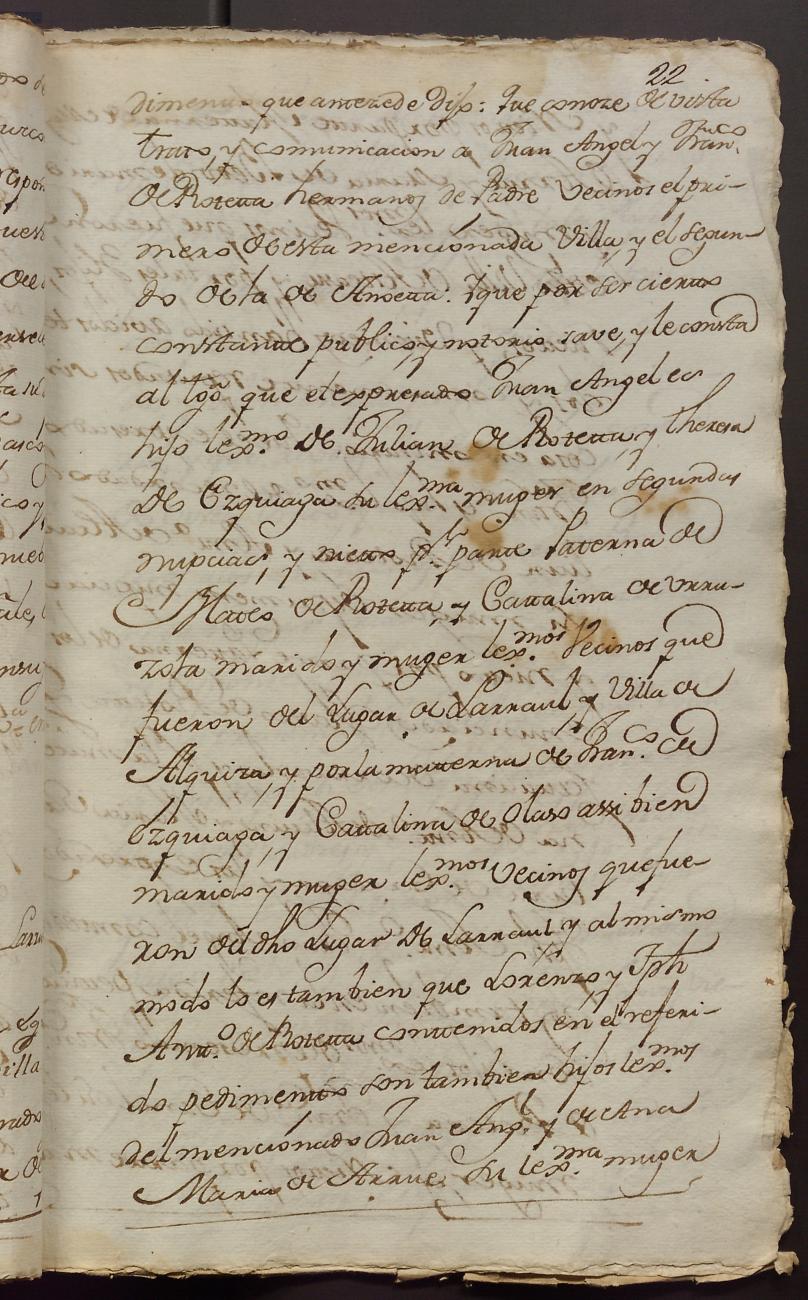 22
dimento que antezede Dijo: Que conoze de vista
trato, y comunicacion a Juan Angel y Fran.co
de Rotetta hermanos de Padre Vecinos el pri-
mero de esta mencionada Villa, y el segun-
do de la de Anoetta. Y que por ser cierto
constante publico, y notorio save, y le consta
al tgo que el expresado Juan Angel es
hijo lex.mo de Julian de Rotetta, y Theresa
de Ezquiaga su lex.ma muger en segundas
nupcias, y nieto pr parte Paterna de
Mateo de Rotetta, y Cattalina de Urru-
zola marido y muger lex.mos Vecinos que
fueron del Lugar de Larraul, y Villa de
Alquiza, y por la matterna de Fran.co de
Ezquiaga, y Cattalina de Olaso assi bien
marido y muger lex.mos Vecinos que fue-
ron del dho Lugar de Larraul y al mismo
modo lo es tambien que Lorenzo, y Jph
Antt.o de Rotetta conttenidos en el referi-
do pedimento son tambien hijos lex.mos
del mencionado Juan Ang.l y de Ana
Maria de Arrue su lex.ma muger